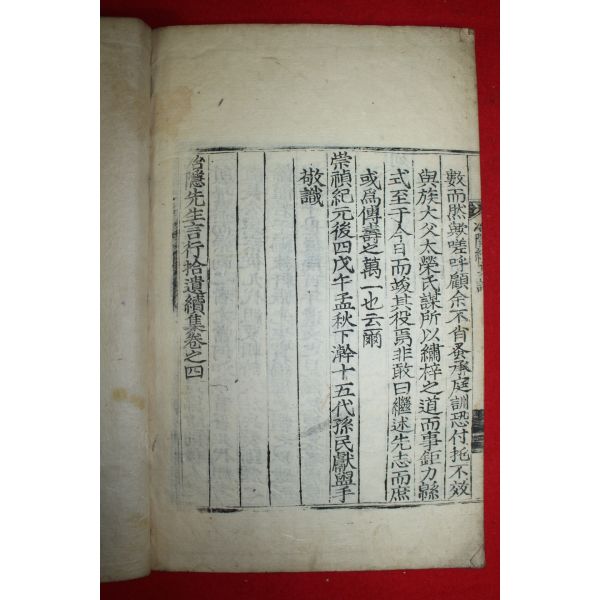 數而然歟嗟呼顧余不肖蚤承庭訓恐付托不效
與族大父太榮氏謀所以繡梓之道而事鉅力綿
式至于今日而竣其役焉非敢曰繼述先志而庶
或爲傳壽之萬一也云爾
崇禎紀元後四戊午孟秋下澣十五代孫民獻盥手
敬識
冶隱先生言行拾遺續集卷之四